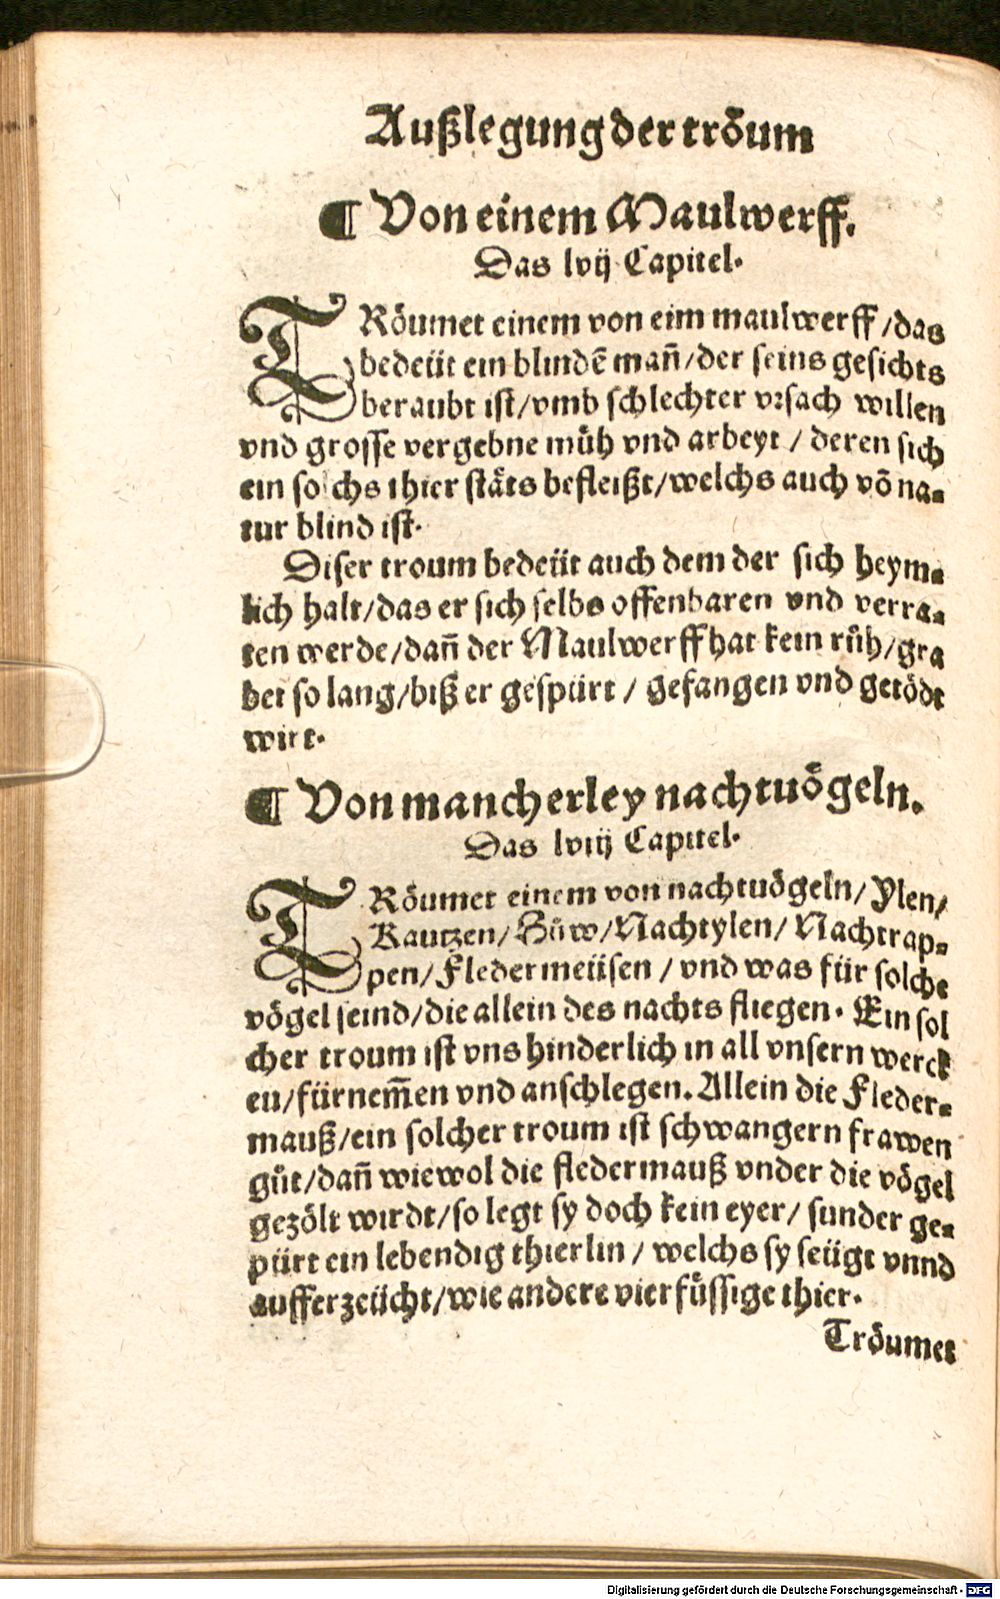 Außlegung der tröum
¶ Von einem Maulwerff.
Das lvij Capitel.
TRöumet einem von eim maulwerff /das
bedeüt ein blindē mañ/der seins gesichts
beraubt ist/vmb schlechter vrsach willen
vnd grosse vergebne müh vnd arbeyt / deren sich
ein solchs thier stäts befleißt/welchs auch vō na⸗
tur blind ist.
Diser troum bedeüt auch dem der sich heym⸗
lich halt/das er sich selbs offenbaren vnd verra⸗
ten werde/dañ der Maulwerff hat kein růh/gra
bet so lang/biß er gespürt / gefangen vnd getödt
wirt.
¶ Von mancherley nachtuögeln.
Das lviij Capitel.
TRöumet einem von nachtuögeln/ Ylen/
Kautzen/ Hüw/ Nachtylen/ Nachtrap⸗
pen/ Fledermeüsen / vnd was für solche
vögel seind/die allein des nachts fliegen. Ein sol
cher troum ist vns hinderlich in all vnsern werck
en/fürnem̄en vnd anschlegen. Allein die Fleder⸗
mauß/ein solcher troum ist schwangern frawen
gůt/dañ wiewol die fledermauß vnder die vögel
gezölt wirdt/so legt sy doch kein eyer/ sunder ge⸗
pürt ein lebendig thierlin / welchs sy seügt vnnd
aufferzeücht/wie andere vierfüssige thier.
Tröumet
Digitalisierung gefördert durch die Deutsche Forschungsgemeinschaft - DFG